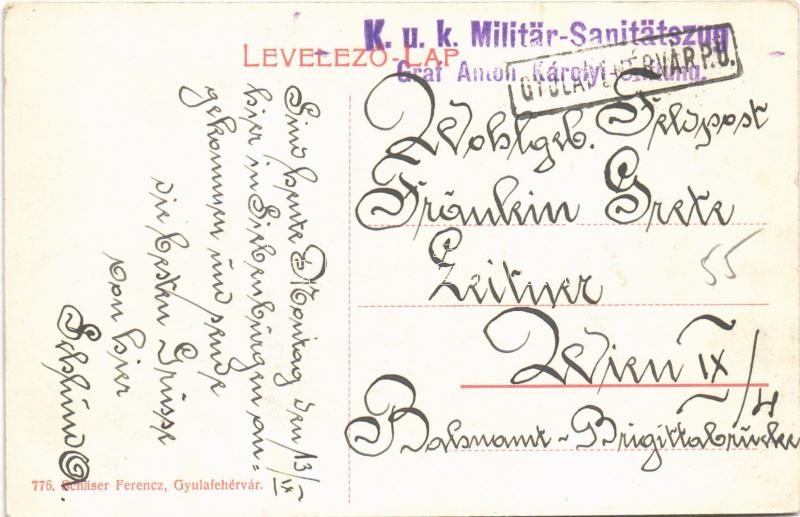 K. u. k. Militär-Sanitätszug
LEVELEZŐ-LAP
Graf Anton Károlyi
GYULAFEHÉRVÁR P.U.
Sind heute Montag den 13/IX
hier in Siebenbürgen an=
gekommen und sende
die besten Grüsse
von hier
Wohlgeb. Feldpost
Fräulein Grete
Zeitner
55
Wien IX/4
Bahnamt - Brigittabrücke
776. Schäser Ferencz, Gyulafehérvár.